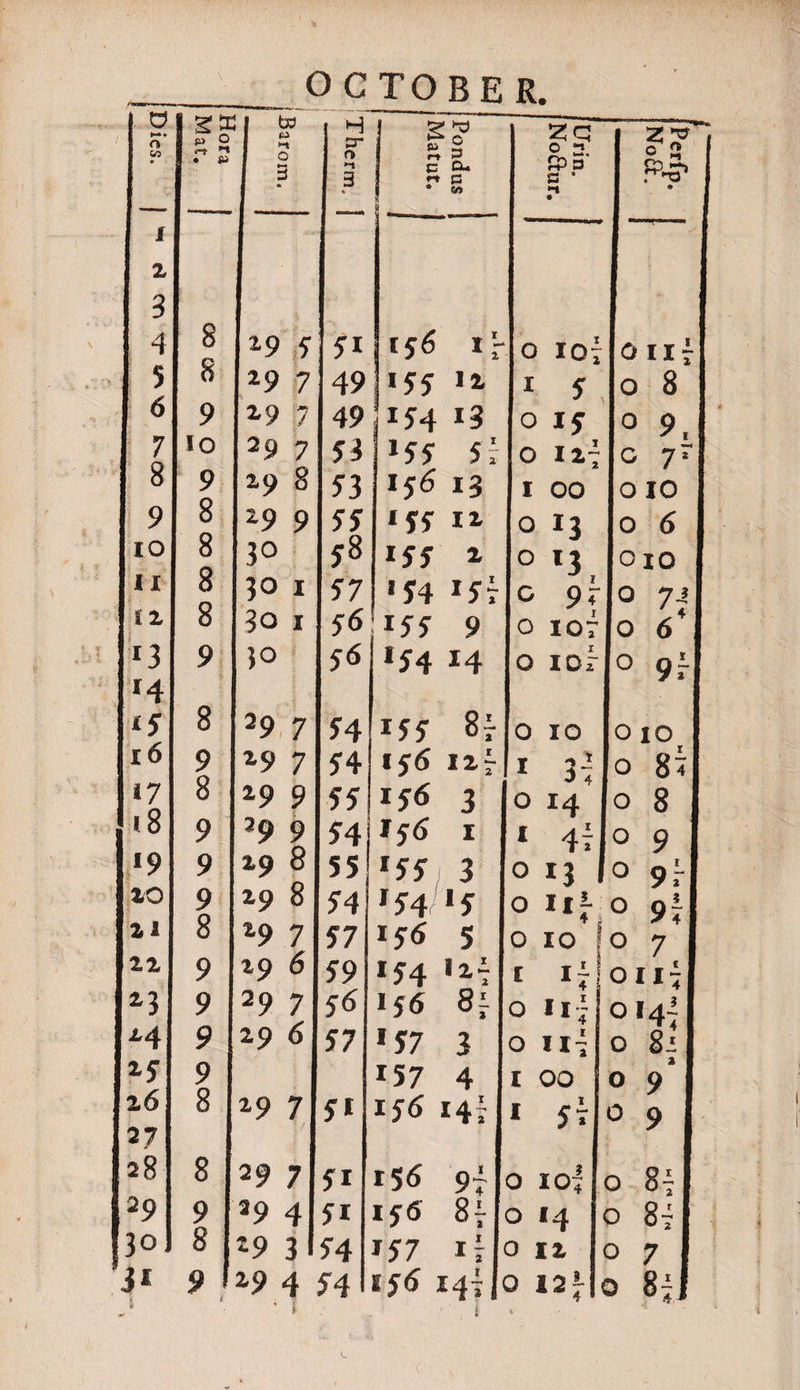 OCTOBER.
Dies. | Hora Mat. | Barom. | Therm. | Pondus Matut. | Urin. Noctur. | Persp. Noct.
1
2
3
4 8 29 5 51 156 1½ 0 10½ 0 11½
5 8 29 7 49 155 12 1 5 0 8
6 9 29 7 49 154 13 0 15 0 9
7 10 29 7 53 155 5½ 0 12½ 0 7½
8 9 29 8 53 156 13 1 00 0 10
9 8 29 9 55 155 12 0 13 0 6
10 8 30 58 155 2 0 13 0 10
11 8 30 1 57 154 15½ 0 9¼ 0 7¾
12 8 30 1 56 155 9 0 10½ 0 6
13 9 30 56 154 14 0 10½ 0 9½
14
15 8 29 7 54 155 8½ 0 10 0 10
16 9 29 7 54 156 12½ 1 3¾ 0 8¼
17 8 29 9 55 156 3 0 14 0 8
18 9 29 9 54 156 1 1 4½ 0 9
19 9 29 8 55 155 3 0 13 0 9½
20 9 29 8 54 154 15 0 11¼ 0 9¼
21 8 29 7 57 156 5 0 10 0 7
22 9 29 6 59 154 12½ 1 1¼ 0 11¼
23 9 29 7 56 156 8½ 0 11¾ 0 14¾
24 9 29 6 57 157 3 0 11½ 0 8½
25 9 157 4 1 00 0 9
26 8 29 7 51 156 14½ 1 5½ 0 9
27
28 8 29 7 51 156 9¼ 0 10¾ 0 8½
29 9 29 4 51 156 8½ 0 14 0 8½
30 8 29 3 54 157 1½ 0 12 0 7
31 9 29 4 54 156 14½ 0 12¾ 0 8¼